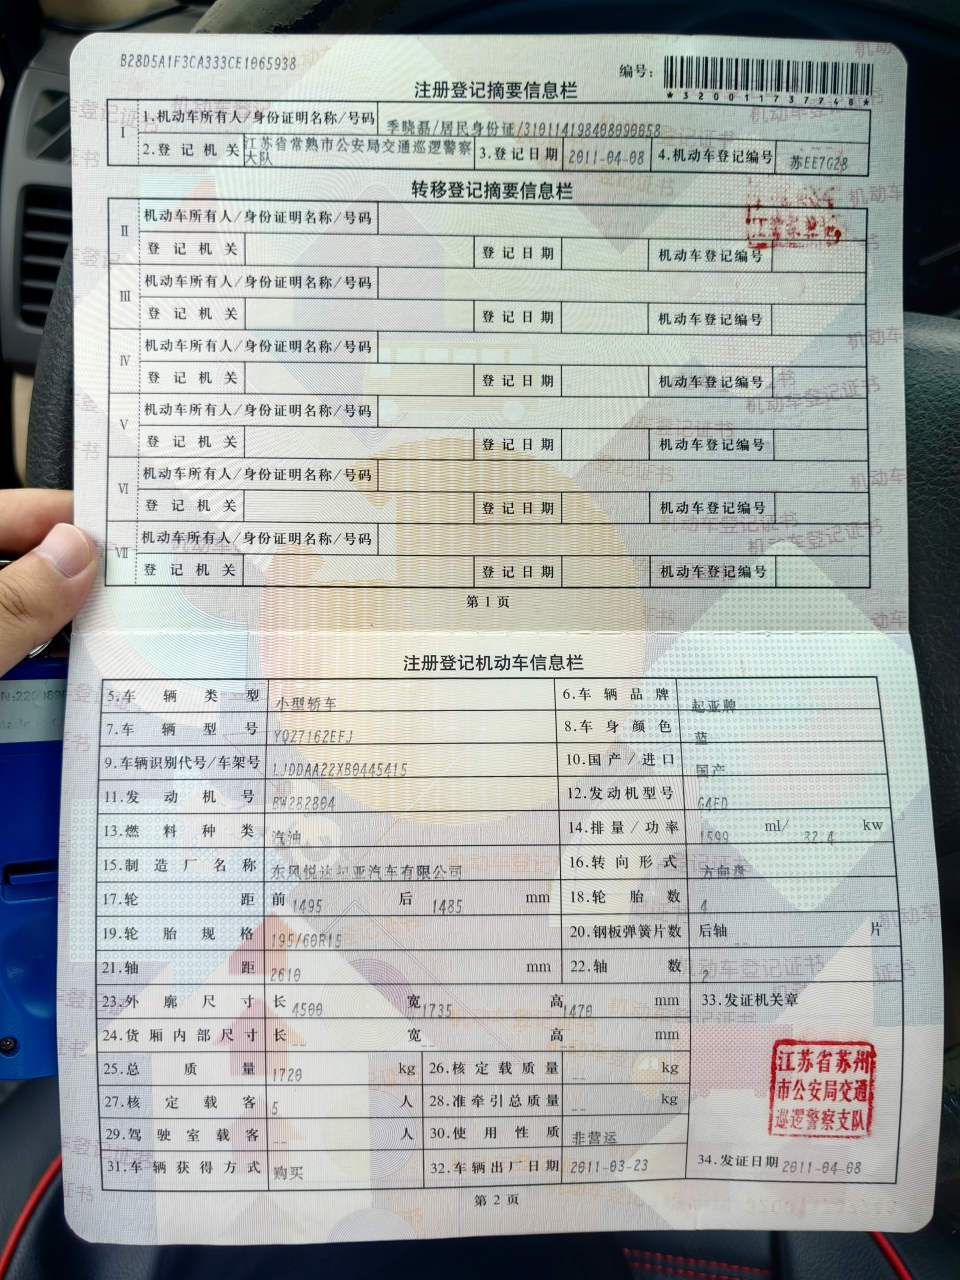 B28D5A1F3CA333CE1065938
编号：
*320011737748*
注册登记摘要信息栏
I
1.机动车所有人/身份证明名称/号码 季晓磊/居民身份证/310114198408090058
2.登记机关 江苏省常熟市公安局交通巡逻警察大队 3.登记日期 2011-04-08 4.机动车登记编号 苏EE7G28
转移登记摘要信息栏
II 机动车所有人/身份证明名称/号码
登记机关 登记日期 机动车登记编号
III 机动车所有人/身份证明名称/号码
登记机关 登记日期 机动车登记编号
IV 机动车所有人/身份证明名称/号码
登记机关 登记日期 机动车登记编号
V 机动车所有人/身份证明名称/号码
登记机关 登记日期 机动车登记编号
VI 机动车所有人/身份证明名称/号码
登记机关 登记日期 机动车登记编号
VII 机动车所有人/身份证明名称/号码
登记机关 登记日期 机动车登记编号
第 1 页
注册登记机动车信息栏
5.车辆类型 小型轿车 6.车辆品牌 起亚牌
7.车辆型号 YQZ7162EFJ 8.车身颜色 蓝
9.车辆识别代号/车架号 LJDDAA22XB0445415 10.国产/进口 国产
11.发动机号 BW282804 12.发动机型号 G4ED
13.燃料种类 汽油 14.排量/功率 1599 ml/ 82.4 kw
15.制造厂名称 东风悦达起亚汽车有限公司 16.转向形式 方向盘
17.轮距 前 1495 后 1485 mm 18.轮胎数 4
19.轮胎规格 195/60R15 20.钢板弹簧片数 后轴 -- 片
21.轴距 2610 mm 22.轴数 2
23.外廓尺寸 长 4500 宽 1735 高 1470 mm 33.发证机关章
24.货厢内部尺寸 长 -- 宽 -- 高 -- mm
25.总质量 1720 kg 26.核定载质量 -- kg
27.核定载客 5 人 28.准牵引总质量 -- kg
29.驾驶室载客 -- 人 30.使用性质 非营运
31.车辆获得方式 购买 32.车辆出厂日期 2011-03-23 34.发证日期 2011-04-08
江苏省苏州
市公安局交通
巡逻警察支队
第 2 页